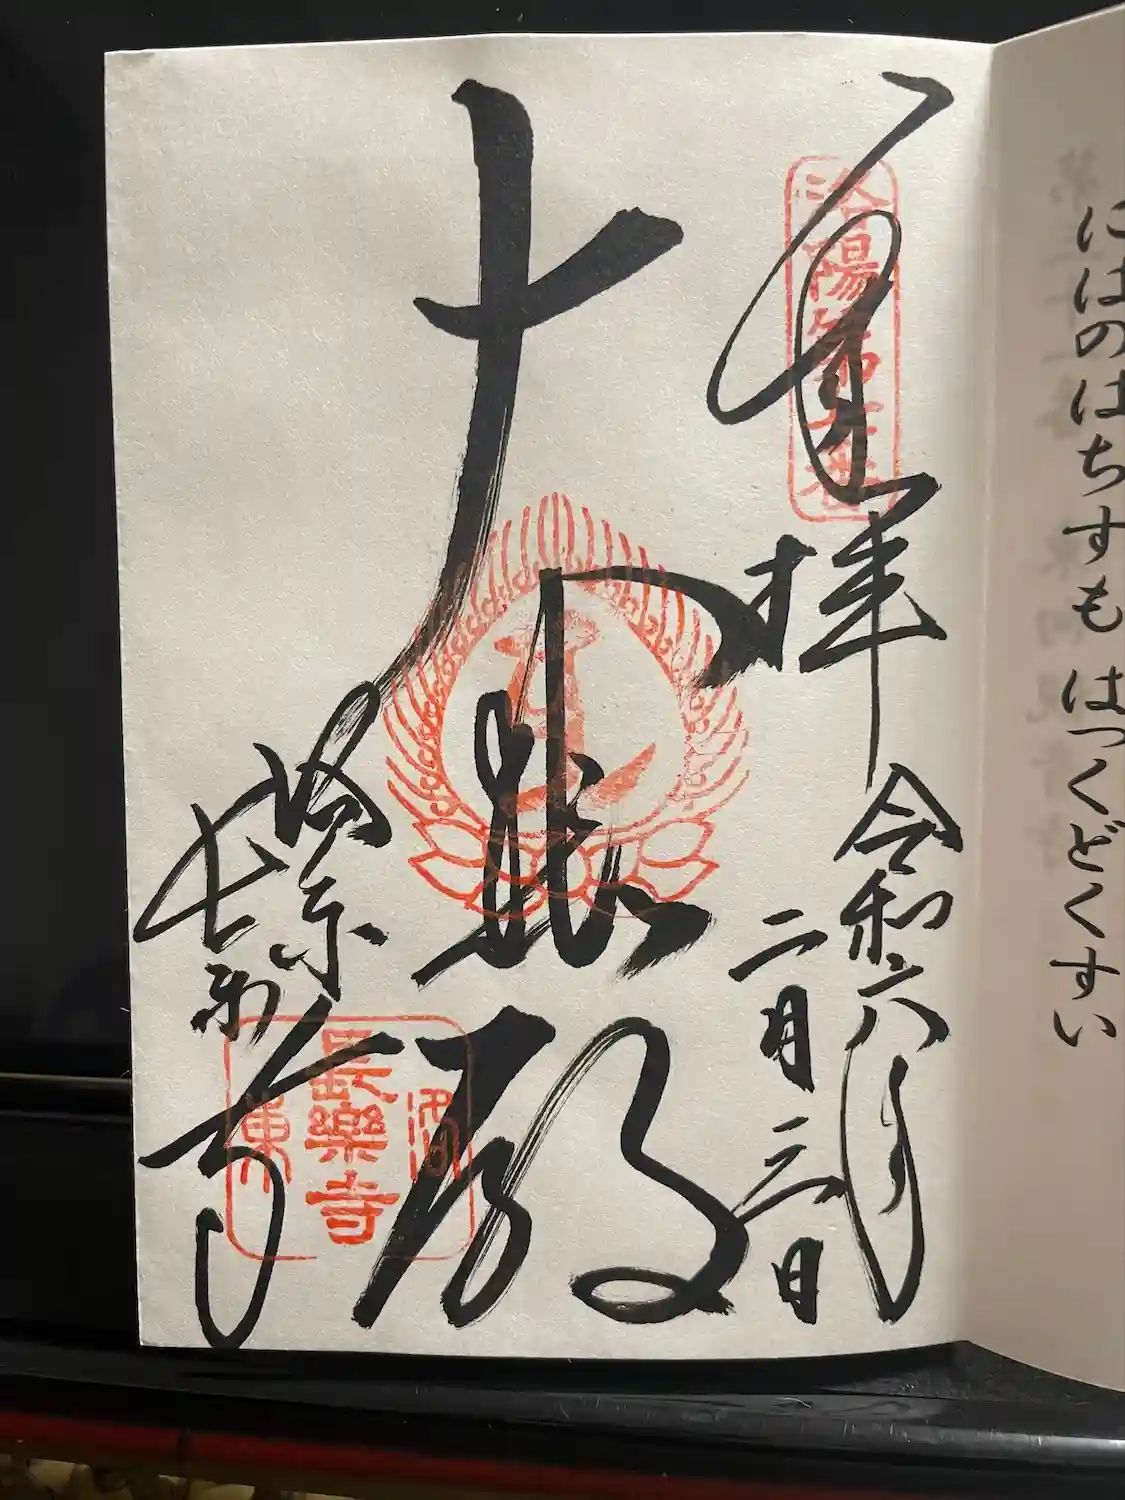 にはのはちすも はつくどくすい
洛陽第七番
奉拝
令和六年
二月三日
大悲殿
長楽寺
洛
長樂寺
東